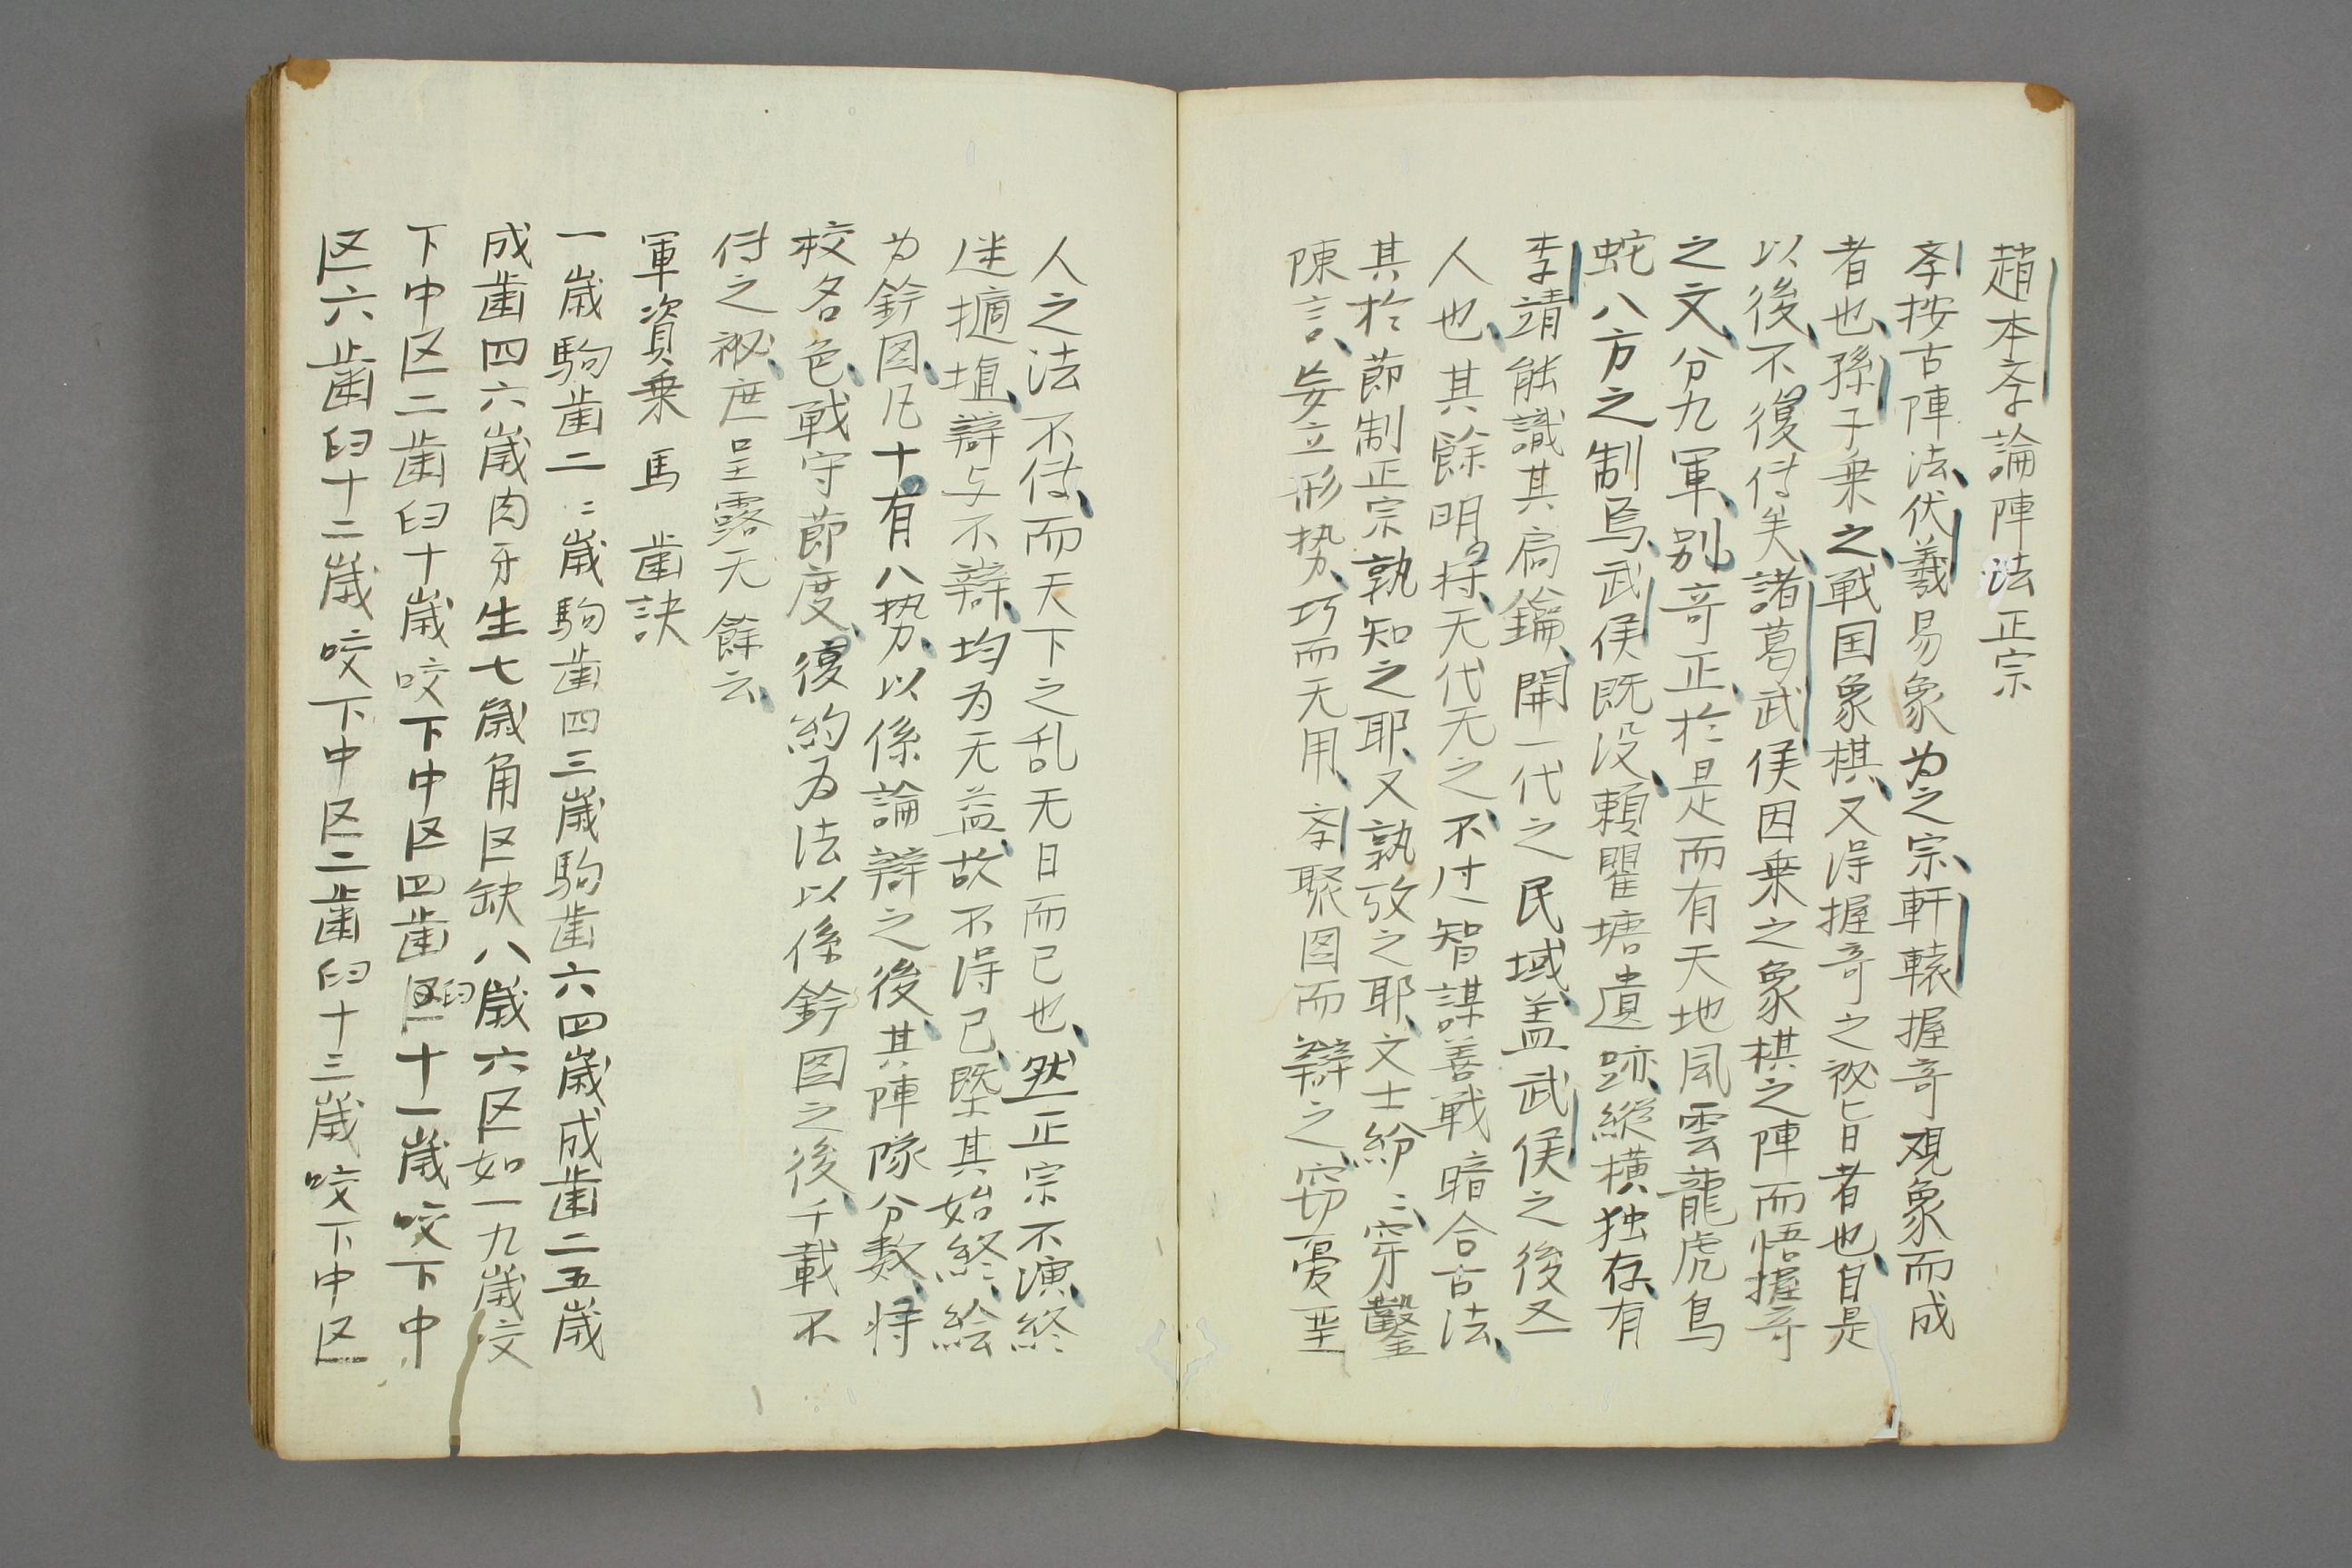 趙本孝論陣法正宗
孝按古陣法、伏羲易象为之宗、軒轅握竒观象而成
者也、孫子乗之、戦国象棋、又淂握竒之祕旨者也、自是
以後、不復付矣、諸葛武侯因乗之象棋之陣而悟握竒
之文、分九軍、别竒正、於是而有天地風雲龍虎鳥
蛇八方之制焉、武侯既没、頼瞿塘遺跡、縦横独存、有
李靖能識其扃鑰、開一代之民域、盖武侯之後又一
人也、其餘明将、无代无之、不过智謀善戦暗合古法、
其於節制正宗孰知之耶、又孰攷之耶、文士紛〻、穿鑿
陳言、妄立形势、巧而无用、孝聚图而辯之、窃憂聖
人之法不付、而天下之乱无日而已也、然正宗不演、終
迷擿埴、辯与不辯、均为无益、故不淂已、既其始終、絵
为鈐图、凡十有八势、以係論辯之後、其陣隊分数、将
校名色、戦守節度、復約为法以係鈐图之後、千載不
付之祕庶呈露无餘云、
軍資乗馬歯訣
一歳駒歯二〻歳駒歯四三歳駒歯六四歳成歯二五歳
成歯四六歳肉牙生七歳角区缺八歳六区如一九歳咬
下中区二歯臼十歳咬下中区四歯臼十一歳咬下中
区六歯臼十二歳咬下中区二歯臼十三歳咬下中区